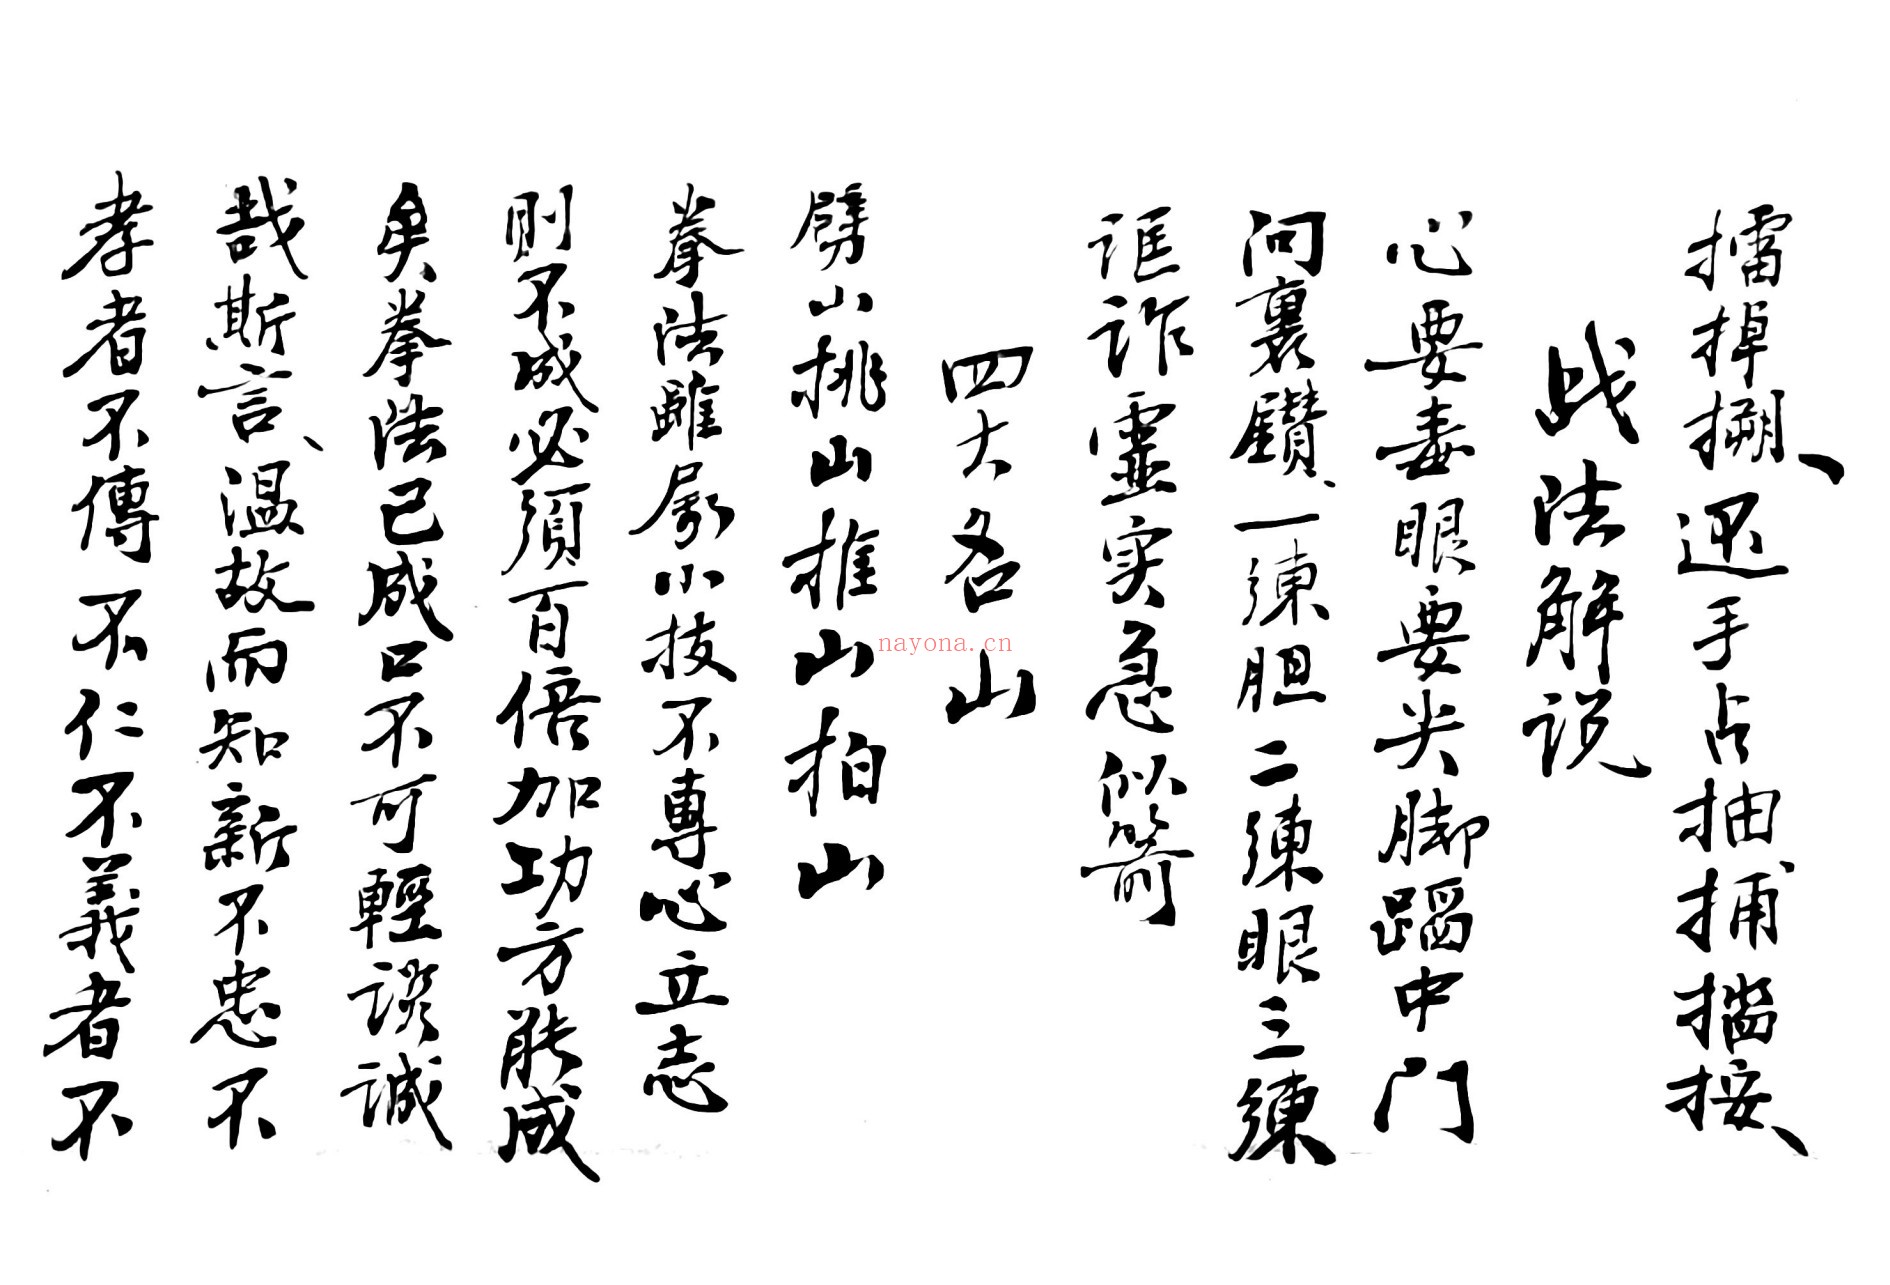 擂掉搠、还手占抽捕擋按、
战法解说
心要毒眼要尖脚蹈中门
问裏鑽、一練胆二練眼三練
诓诈靈实急似箭
四大名山
劈山挑山推山拍山
拳法雖属小技不專心立志
则不成必須百倍加功方能成
矣拳法已成口不可輕談誠
哉斯言、溫故而知新不忠不
孝者不傳不仁不義者不
nayona.cn